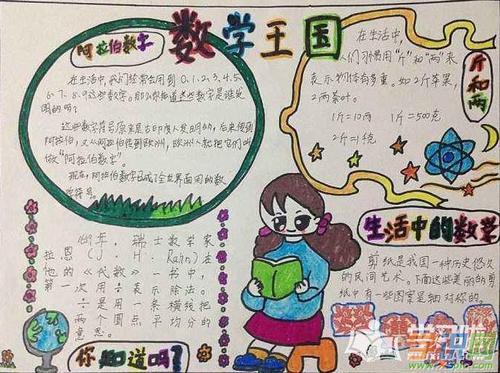 数学王国
阿拉伯数字
在生活中,我们经常会用到0.1.2.3.4.5
6.7.8.9这些数字。那么你知道这些数字是谁发
明的吗?
这些数字符号原来是古印度人发明的,后来传到
阿拉伯,又从阿拉伯传到欧洲,欧洲人就把它们叫
做"阿拉伯数字"。
现在,阿拉伯数字已成了全世界通用的数
字符号。
斤和两
在生活中,
人们习惯用"斤"和"两"来
表示物体有多重。如2斤苹果,
2两茶叶。
1斤=10两 1斤=500克
2斤=1千克
年,瑞士数学家
拉恩(J.H.Rahn)在
他的《代数》一书中,
第一次用÷表示除法。
÷是用一条横线把
两个圆点平均分的
意思。
你知道吗?
生活中的数学
剪纸是我国一种历史悠久
的民间艺术。下面这些美丽的剪
纸中有一些图案是轴对称的。
学识网